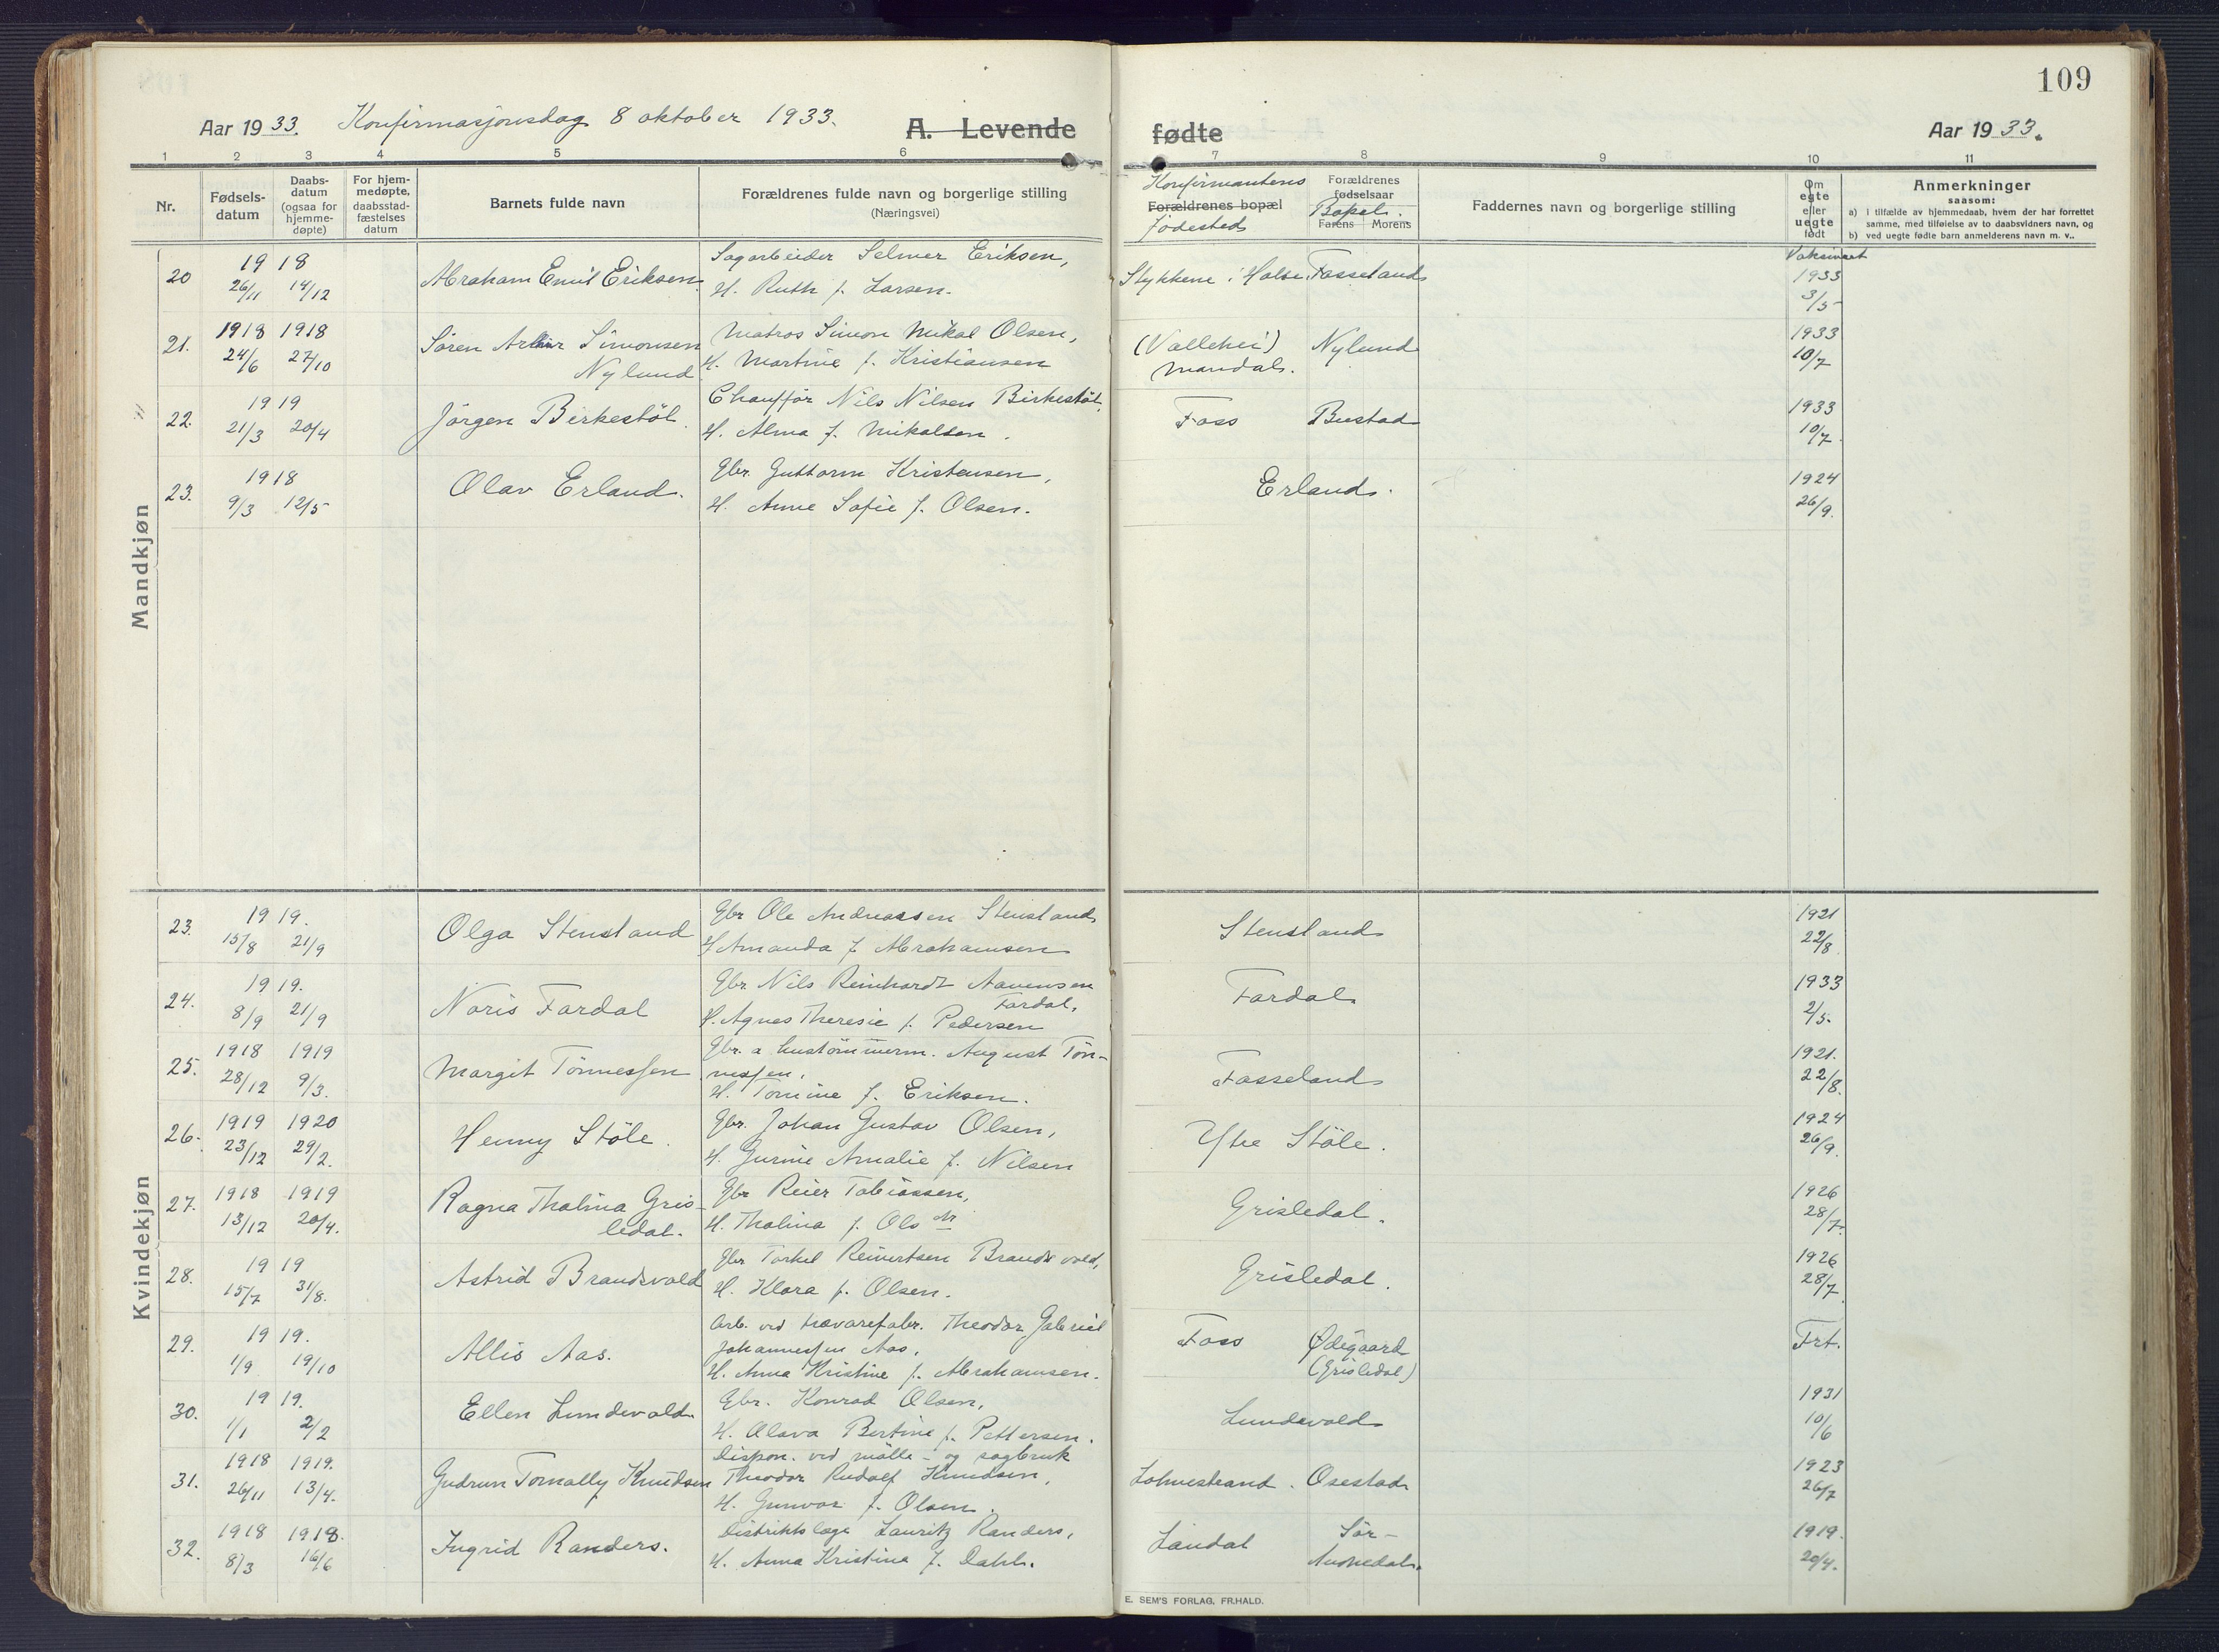 109
Aar 1933. Konfirmasjonsdag 8 oktober 1933. A. Levende fødte Aar 1933.
1 2 3 4 5 6 7 8 9 10 11
Nr.
Fødsels-
datum
Daabs-
datum
(ogsaa for
hjemme-
døpte)
For hjem-
medøpte,
daabsstad-
fæstelses
datum
Barnets fulde navn
Forældrenes fulde navn og borgerlige stilling
(Næringsvei)
Konfirmantens
Forældrenes bopæl
fødested
Forældrenes
fødselsaar
Bopel.
Farens Morens
Faddernes navn og borgerlige stilling
Om
egte
eller
uegte
født
Anmerkninger
saasom:
a) i tilfælde av hjemmedaab, hvem der har forrettet
samme, med tilføielse av to daabsvidners navn, og
b) ved uegte fødte barn anmelderens navn m. v..
Vaksinert
Mandkjøn
20 1918 26/11 14/12 Abraham Emil Eriksen. Sagarbeider Selmer Eriksen, Fasseland 1933
H. Ruth f. Larsen. 3/5
21. 1918 1918 Sören Simonsen Matros Simon Mikal Olsen, (Vallehei) Nylund 1933
24/6 27/10 Nylund H. Martine f. Kristiansen Mandal. 10/7
22. 1919 Jörgen Birkestöl. Chauffør Nils Nilsen Birkestöl, Foss Bustad 1933
21/3 20/4 H. Alma f. Mikalsen. 10/7
23. 1918 Olav Erland. Gbr. Guttorm Kristensen, Erland. 1924
9/3 12/5 H. Anne Sofie f. Olsen. 26/9.
Kvindekjøn
23. 1919. Olga Stensland Gbr Ole Andreassen Stensland Stensland 1921
15/8 21/9 H Amanda f. Abrahamsen 22/8
24. 1919. Noris Fardal Gbr. Nils Reinhardt Aanensen Fardal 1933
8/9 21/9 Fardal, 2/5.
H. Agnes Theresie f. Pedersen
25. 1918 1919 Margit Tönnessen Gbr. a hustömmerm. August Tön- Fasseland 1921.
28/12 9/3. nessen, 22/8.
H. Tomine f. Eriksen.
26. 1919 1920 Henny Stöle. Gbr. Johan Gustav Olsen, Ytre Stöle. 1924
23/12 29/2. H. Gurine Amalie f. Nilsen 26/9.
27. 1918 1919 Ragna Thalina Gris- Gbr Reier Tobiassen, Grisledal. 1926
13/12 20/4. ledal. H. Thalina f. Ols dtr 28/7.
28. 1919 Astrid Brandsvold Gbr Torkel Reinertsen Brandsvold, Grisledal. 1926
15/7 31/8. H. Klara f. Olsen. 28/7.
29. 1919. Allis Aas. Arb. ved trævarefabr. Theodor Gabriel Foss Ødegaard Frt.
1/9 19/10 Johannessen Aas, (Grisledal)
H. Anna Kristine f. Abrahamsen.
30. 1919. Ellen Lundevold. Gbr. Konrad Olsen, Lundevold 1931
1/1 2/2 H. Olava Bertine f. Pettersen. 10/6
31. 1918 1919. Gudrun Tomally Knudsen Dispon. ved mölle- og sagbruk 1923
26/11 13/4. Theodor Rudolf Knudsen, Osestad 26/7
H. Gunvor f. Olsen.
32. 1918 1918. Ingrid Randers. Distriktslæge Lauritz Randers, Laudal Sör- 1919.
8/3 16/6 H. Anna Kristina f. Dahl. Audnedal. 20/4.
E. SEM'S FORLAG, FR.HALD.